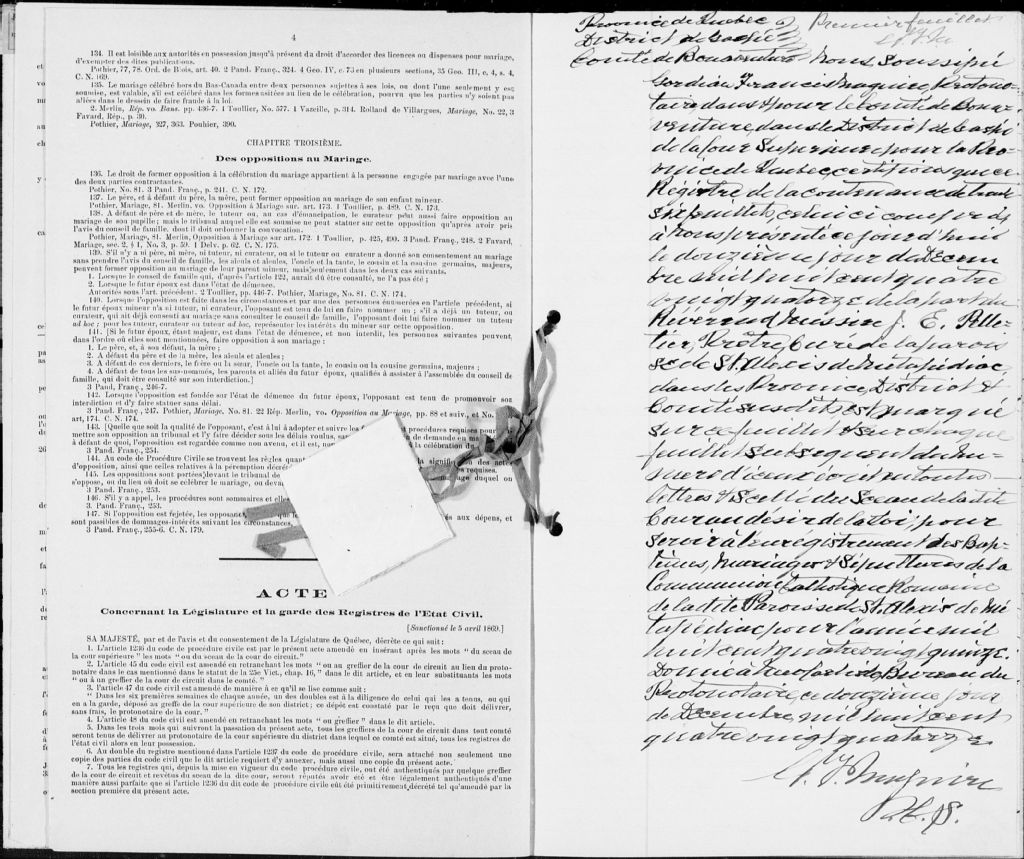 4
134. Il est loisible aux autorités en possession jusqu'à présent du droit d'accorder des licences ou dispenses pour mariage,
d'exempter des dites publications.
Pothier, 77, 78. Ord. de Blois, art. 40. 2 Pand. Franç., 324. 4 Geo. IV, c. 73 en plusieurs sections, 35 Geo. III, c. 4, s. 4,
C. N. 169.
135. Le mariage célébré hors du Bas-Canada entre deux personnes sujettes à ses lois, ou dont l'une seulement y est
soumise, est valable, s'il est célébré dans les formes usitées au lieu de la célébration, pourvu que les parties n'y soient pas
allées dans le dessein de faire fraude à la loi.
2. Merlin, Rép. vo. Bans. pp. 436-7. 1 Toullier, No. 577. 1 Vazeille, p. 314. Rolland de Villargues, Mariage, No. 22, 3
Favard, Rép., p. 39.
Pothier, Mariage, 227, 363. Pouhier, 390.
CHAPITRE TROISIÈME.
Des oppositions au Mariage.
136. Le droit de former opposition à la célébration du mariage appartient à la personne engagée par mariage avec l'une
des deux parties contractantes.
Pothier, No. 81. 3 Pand. Franç., p. 241. C. N. 172.
137. Le père, et à défaut du père, la mère, peut former opposition au mariage de son enfant mineur.
Pothier, Mariage, 81. Merlin, vo. Opposition à Mariage sur. art. 173. 1 Toullier, p. 489. C. N. 173.
138. A défaut de père et de mère, le tuteur ou, au cas d'émancipation, le curateur peut aussi faire opposition au
mariage de son pupille; mais le tribunal auquel elle est soumise ne peut statuer sur cette opposition qu'après avoir pris
l'avis du conseil de famille, dont il doit ordonner la convocation.
Pothier, Mariage, 81. Merlin, Opposition à Mariage sur art. 172. 1 Toullier, p. 425, 490. 3 Pand. Franç., 248. 2 Favard,
Mariage, sec. 2, § 1, No. 3, p. 59. 1 Delv. p. 62. C. N. 175.
139. S'il n'y a ni père, ni mère, ni tuteur, ni curateur, ou si le tuteur ou curateur a donné son consentement au mariage
sans prendre l'avis du conseil de famille, les aïeuls et aïeules, l'oncle et la tante, le cousin et la cousine germains, majeurs,
peuvent former opposition au mariage de leur parent mineur, mais seulement dans les deux cas suivants.
1. Lorsque le conseil de famille qui, d'après l'article 122, aurait dû être consulté, ne l'a pas été;
2. Lorsque le futur époux est dans l'état de démence.
Autorités sous l'art. précédent. 2 Toullier, pp. 446-7. Pothier, Mariage, No. 81. C. N. 174.
140. Lorsque l'opposition est faite dans les circonstances et par une des personnes énumérées en l'article précédent, si
le futur époux mineur n'a ni tuteur, ni curateur, l'opposant est tenu de lui en faire nommer un; s'il a déjà un tuteur, ou
curateur, qui ait déjà consenti au mariage sans consulter le conseil de famille, l'opposant doit lui faire nommer un tuteur
ad hoc; pour les tuteur, curateur ou tuteur ad hoc, représenter les intérêts du mineur sur cette opposition.
141. [Si le futur époux, étant majeur, est dans l'état de démence, et non interdit, les personnes suivantes peuvent,
dans l'ordre où elles sont mentionnées, faire opposition à son mariage:
1. Le père, et, à son défaut, la mère;
2. A défaut du père et de la mère, les aïeuls et aïeules;
3. A défaut de ces derniers, le frère ou la sœur, l'oncle ou la tante, le cousin ou la cousine germains, majeurs;
4. A défaut de tous les sus-nommés, les parents et alliés du futur époux, qualifiés à assister à l'assemblée du conseil de
famille, qui doit être consulté sur son interdiction.]
3 Pand. Franç., 246-7.
142. Lorsque l'opposition est fondée sur l'état de démence du futur époux, l'opposant est tenu de promouvoir son
interdiction et d'y faire statuer sans délai.
3 Pand. Franç., 247. Pothier, Mariage, No. 81. 22 Rép. Merlin, vo. Opposition au Mariage, pp. 88 et suiv., et No.
art, 174. C. N. 174.
143. [Quelle que soit la qualité de l'opposant, c'est à lui à adopter et suivre les procédures requises pour
mettre son opposition au tribunal et l'y faire décider sous les délais voulus, de demande en
à défaut de quoi, l'opposition est regardée comme non avenue, et il est, la célébration du
3 Pand. Franç., 254.
144. Au code de Procédure Civile se trouvent les règles quant la signification des actes
d'opposition, ainsi que celles relatives à la péremption requises.
145. Les oppositions sont portées devant le tribunal de duquel on
s'oppose, ou du lieu où doit se célébrer le mariage, ou
3 Pand. Franç., 253.
146. S'il y a appel, les procédures sont sommaires et
3 Pand. Franç., 253.
147. Si l'opposition est rejetée, les opposants, aux dépens, et
sont passibles de dommages-intérêts suivant les circonstances,
3 Pand. Franç., 255-6. C. N. 179.
ACTE
Concernant la Législature et la garde des Registres de l'Etat Civil.
[Sanctionné le 5 avril 1869.]
SA MAJESTÉ, par et de l'avis et du consentement de la Législature de Québec, décrète ce qui suit:
1. L'article 1236 du code de procédure civile est par le présent acte amendé en insérant après les mots " du sceau de
la cour supérieure " les mots " ou du sceau de la cour de circuit."
2. L'article 45 du code civil est amendé en retranchant les mots " ou au greffier de la cour de circuit au lieu du proto-
notaire dans le cas mentionné dans le statut de la 25e Vict., chap. 16, " dans le dit article, et en leur substituant les mots
" ou à un greffier de la cour de circuit dans le comté. "
3. l'article 47 du code civil est amendé de manière à ce qu'il se lise comme suit:
" Dans les six premières semaines de chaque année, un des doubles est à la diligence de celui qui les a tenus, ou qui
en a la garde, déposé au greffe de la cour supérieure de son district; ce dépôt est constaté par le reçu que doit délivrer,
sans frais, le protonotaire de la cour. "
4. L'article 48 du code civil est amendé en retranchant les mots " ou greffier " dans le dit article.
5. Dans les trois mois qui suivront la passation du présent acte, tous les greffiers de la cour de circuit dans tout comté
seront tenus de délivrer au protonotaire de la cour supérieure du district dans lequel ce comté est situé, tous les registres de
l'état civil alors en leur possession.
6. Au double du registre mentionné dans l'article 1237 du code de procédure civile, sera attaché non seulement une
copie des parties du code civil que le dit article requiert d'y annexer, mais aussi une copie du présent acte.
7. Tous les registres qui, depuis la mise en vigueur du code procédure civile, ont été authentiqués par quelque greffier
de la cour de circuit et revêtus du sceau de la dite cour, seront réputés avoir été et être légalement authentiqués d'une
manière aussi parfaite que si l'article 1236 du dit code de procédure civile eût été primitivement décrété tel qu'amendé par la
section première du présent acte.
Province de Québec
District de Gaspé
Comté de Bonaventure
Premier feuillet
Nous soussigné
Gordian Francis Maguire, Protono-
taire dans & pour le Comté de Bona-
venture, dans le District de Gaspé
de la Cour Supérieure pour la Pro-
vince de Québec, certifions que ce
Registre de la contenance de
six feuillets, celui-ci compris
à Nous présenté ce jour d'hui
le douzième jour de Décem-
bre mil huit cent quatre
vingt quatorze de la part du
Révérend Messire J. E. Pelle-
tier, Prêtre, Curé de la parois-
se de St. Alexis de Métapédiac,
dans les Province, District &
Comté susdits est marqué
sur ce feuillet & sur chaque
feuillet subséquent du nu-
méro d'iceux écrit en toutes
lettres & scellé du Sceau de la dite
Cour au désir de la loi, pour
servir à l'enregistrement des Bap-
têmes, Mariages & Sépultures de la
Communion Catholique Romaine
de la dite Paroisse de St. Alexis de Mé-
tapédiac pour l'année mil
huit cent quatre vingt quinze.
Donné à New Carlisle Bureau du
Protonotaire, ce douzième jour
de Décembre, mil huit cent
quatre vingt quatorze
G. F. Maguire
P. C. S.